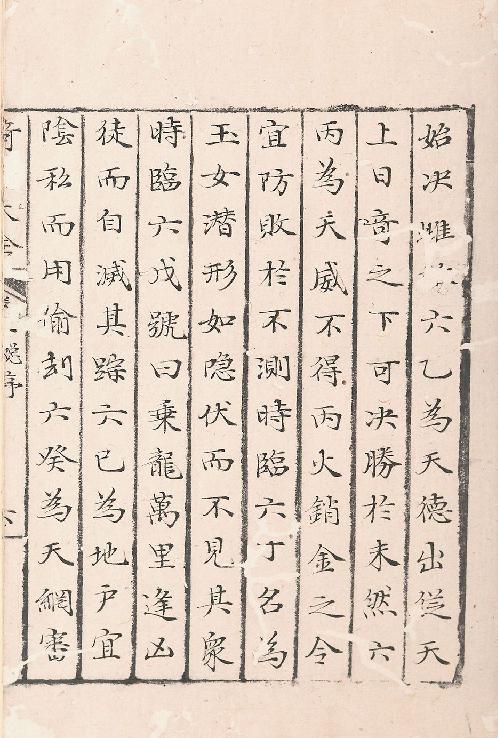 始决雌六乙為天德出従天
上日竒之下可决勝於未然六
丙為天威不得丙火銷金之令
宜防敗於不測時臨六丁名為
玉女潜形如隐伏而不見其衆
時臨六戊號曰乗龍萬里逢凶
徒而自滅其踪六已為地户宜
陰私而用偷刼六癸為天網密
大全 序